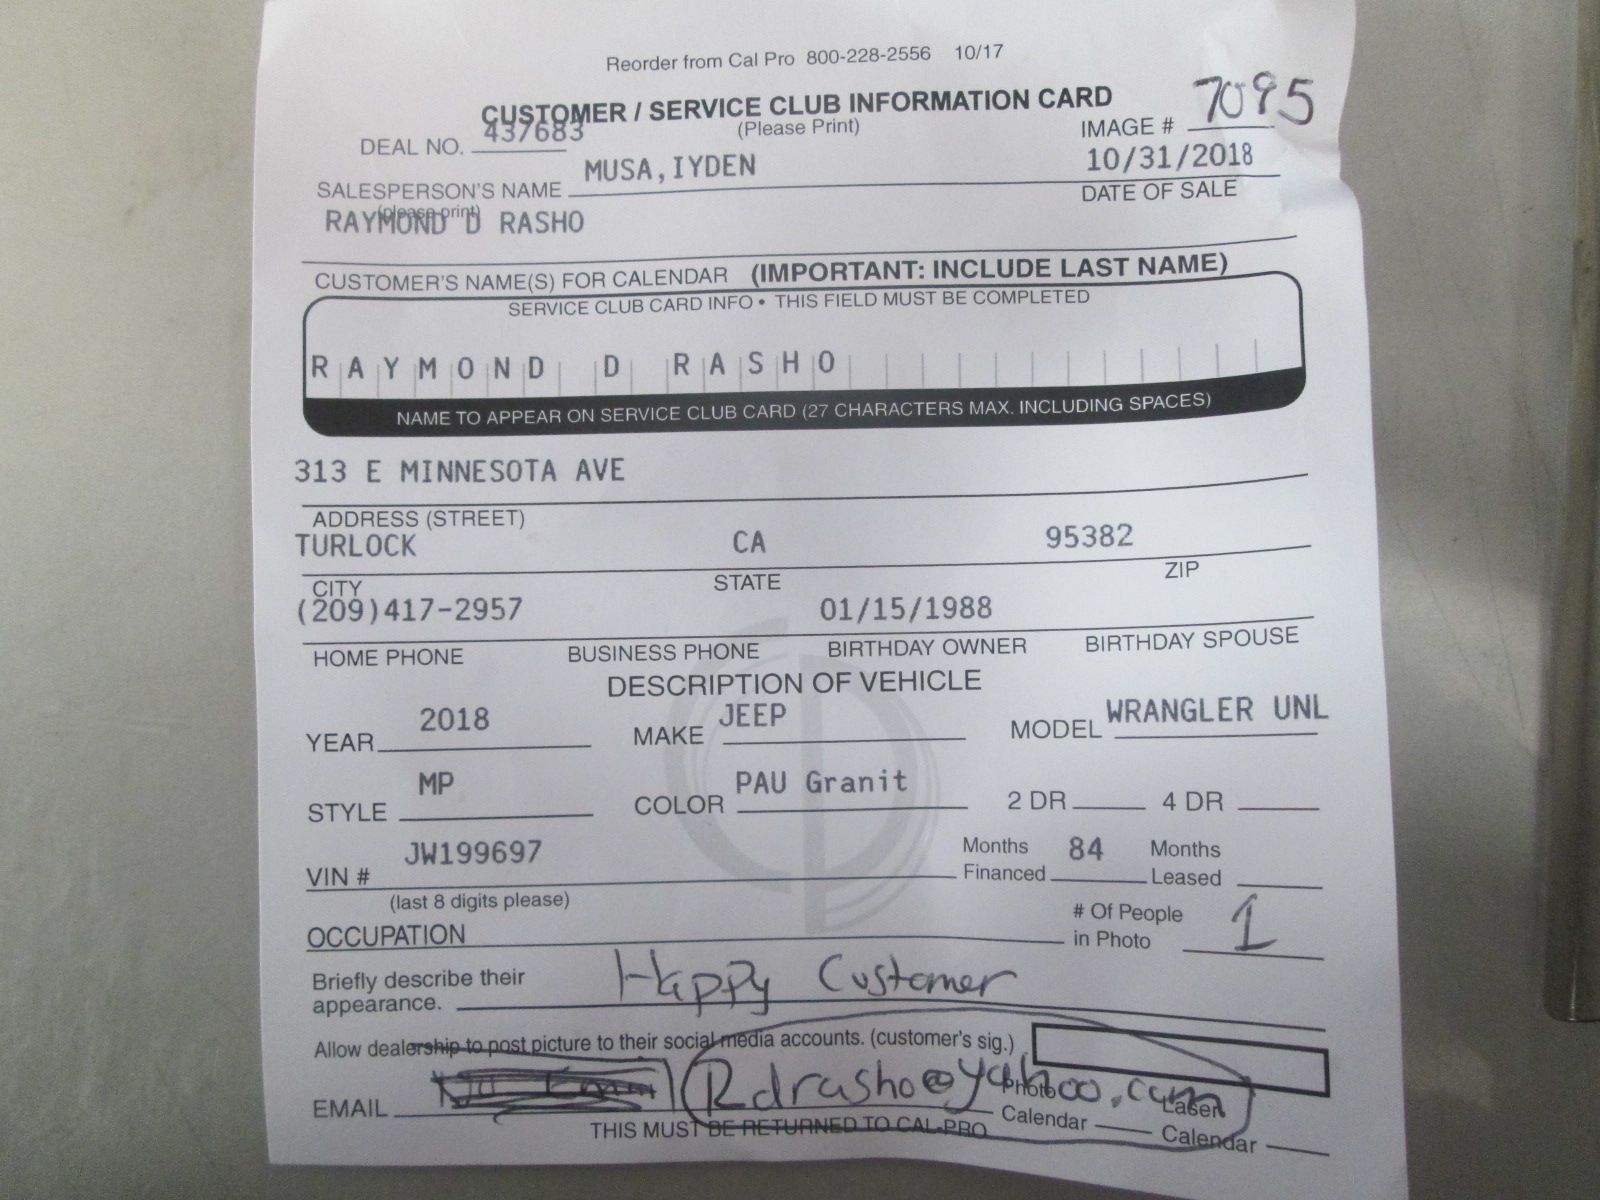 Reorder from Cal Pro 800-228-2556 10/17
CUSTOMER / SERVICE CLUB INFORMATION CARD
(Please Print)
DEAL NO. 437683
IMAGE # 7095
SALESPERSON'S NAME MUSA,IYDEN
(please print)
10/31/2018
DATE OF SALE
RAYMOND D RASHO
CUSTOMER'S NAME(S) FOR CALENDAR (IMPORTANT: INCLUDE LAST NAME)
SERVICE CLUB CARD INFO • THIS FIELD MUST BE COMPLETED
RAYMOND D RASHO
NAME TO APPEAR ON SERVICE CLUB CARD (27 CHARACTERS MAX. INCLUDING SPACES)
313 E MINNESOTA AVE
ADDRESS (STREET)
TURLOCK CA 95382
CITY STATE ZIP
(209)417-2957 01/15/1988
HOME PHONE BUSINESS PHONE BIRTHDAY OWNER BIRTHDAY SPOUSE
DESCRIPTION OF VEHICLE
YEAR 2018 MAKE JEEP MODEL WRANGLER UNL
STYLE MP COLOR PAU Granit 2 DR 4 DR
VIN # JW199697 Months Financed 84 Months Leased
(last 8 digits please)
OCCUPATION # Of People in Photo 1
Briefly describe their appearance. Happy Customer
Allow dealership to post picture to their social media accounts. (customer's sig.)
EMAIL Rdrasho@yahoo.com
Photo Calendar Laser Calendar
THIS MUST BE RETURNED TO CAL-PRO